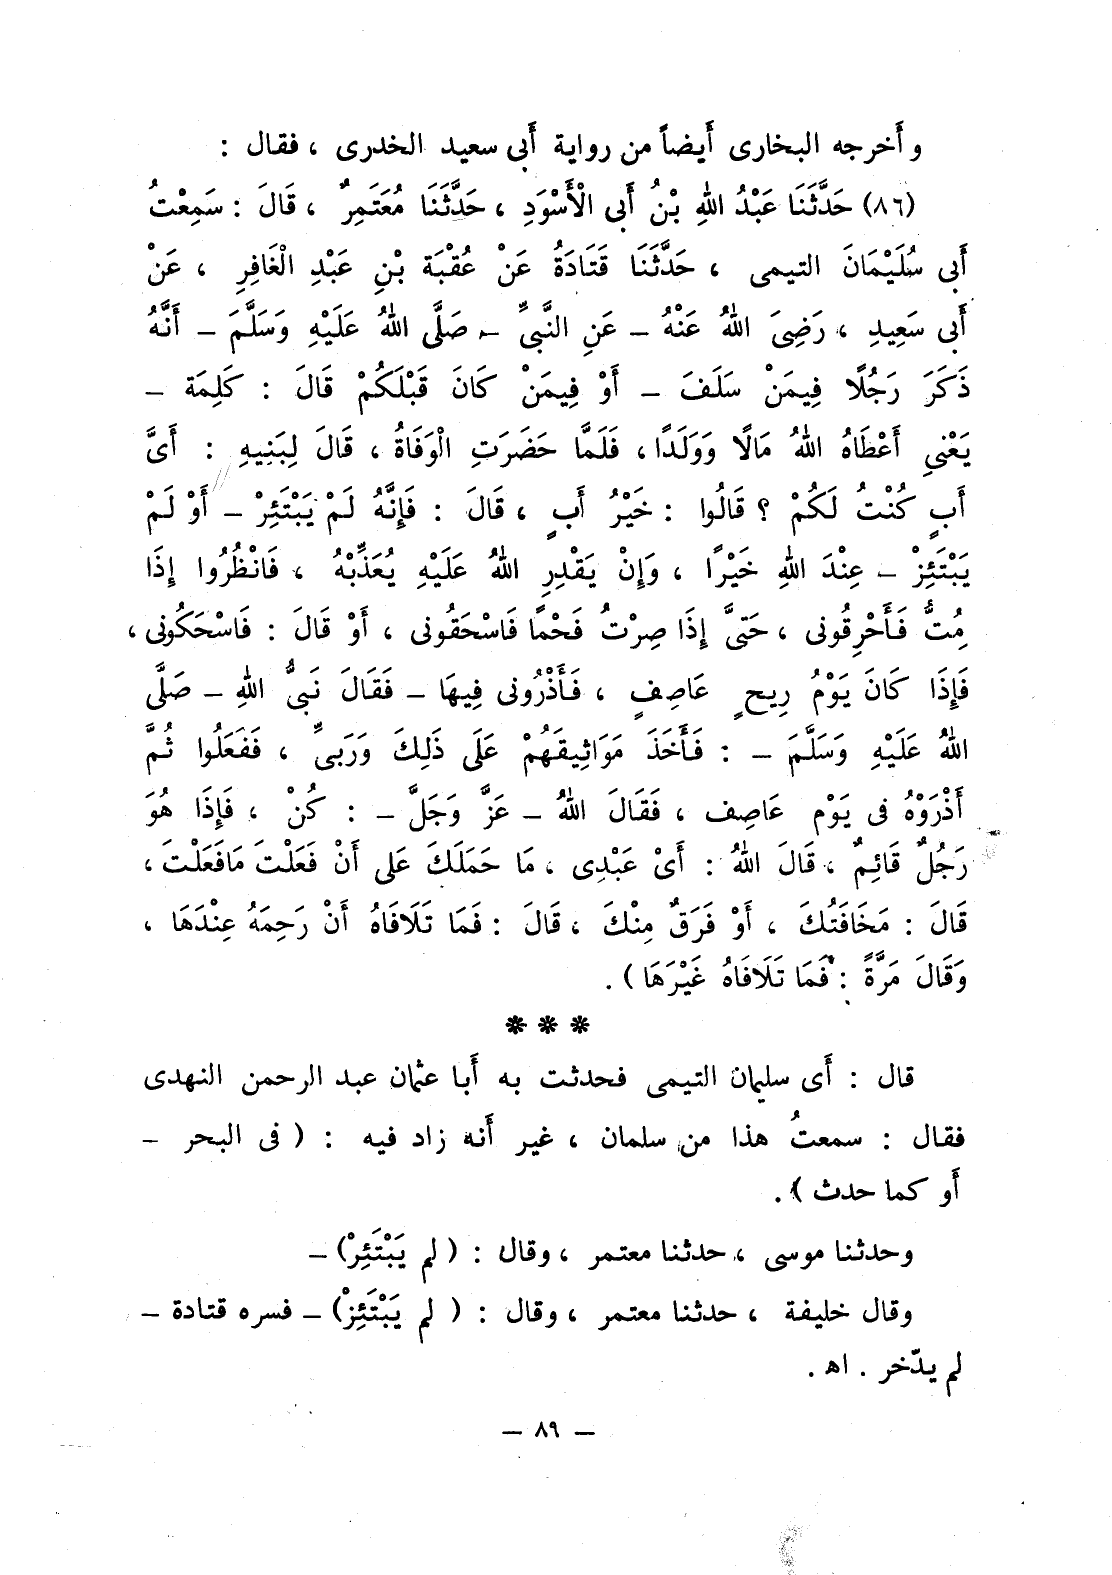 وأخرجه البخارى أيضاً من رواية أبى سعيد الخدرى ، فقال :
(٨٦) حَدَّثَنَا عَبْدُ اللهِ بْنُ أَبى الْأَسْوَدِ ، حَدَّثَنَا مُعْتَمِرٌ ، قَالَ : سَمِعْتُ
أَبى سُلَيْمَانَ التيمى ، حَدَّثَنَا قَتَادَةُ عَنْ عُقْبَة بْنِ عَبْدِ الْغَافِرِ ، عَنْ
أَبى سَعِيدِ ، رَضِىَ اللهُ عَنْهُ - عَنِ النَّبىِّ - صَلَّى اللهُ عَلَيْهِ وَسَلَّمَ - أَنَّهُ
ذَكَرَ رَجُلًا فِيمَنْ سَلَفَ - أَوْ فِيمَنْ كَانَ قَبْلَكُمْ قَالَ : كَلِمَة -
يَعْنىِ أَعْطَاهُ اللهُ مَالًا وَوَلَدًا ، فَلَمَّا حَضَرَتِ الْوَفَاةُ ، قَالَ لِبَنِيهِ : أَىَّ
أَبٍ كُنْتُ لَكُمْ ؟ قَالُوا : خَيْرُ أَبٍ ، قَالَ : فَإِنَّهُ لَمْ يَبْتَئِرْ - أَوْ لَمْ
يَبْتَئِزْ - عِنْدَ اللهِ خَيْرًا ، وَإِنْ يَقْدِرِ اللهُ عَلَيْهِ يُعَذِّبْهُ ، فَانْظُرُوا إِذَا
مِتُّ فَأَحْرِقُونى ، حَتىَّ إِذَا صِرْتُ فَحْمًا فَاسْحَقُونى ، أَوْ قَالَ : فَاسْحَكُونى ،
فَإِذَا كَانَ يَوْمُ رِيحٍ عَاصِفٍ ، فَأَذْرُونى فِيهَا - فَقَالَ نَبىُّ اللهِ - صَلَّى
اللهُ عَلَيْهِ وَسَلَّمَ - : فَأَخَذَ مَوَاثِيقَهُمْ عَلَى ذَلِكَ وَرَبىِّ ، فَفَعَلُوا ثُمَّ
أَذْرَوْهُ فى يَوْم عَاصِف ، فَقَالَ اللهُ - عَزَّ وَجَلَّ - : كُنْ ، فَإِذَا هُوَ
رَجُلٌ قَائِمٌ ، قَالَ اللهُ : أَىْ عَبْدِى ، مَا حَمَلَكَ عَلى أَنْ فَعَلْتَ مَافَعَلْتَ ،
قَالَ : مَخَافَتُكَ ، أَوْ فَرَقٌ مِنْكَ ، قَالَ : فَمَا تَلَافَاهُ أَنْ رَحِمَهُ عِنْدَهَا ،
وَقَالَ مَرَّةً : فَمَا تَلَافَاهُ غَيْرَهَا ) .
* * *
قال : أَى سليمان التيمى فحدثت به أَبا عثمان عبد الرحمن النهدى
فقال : سمعتُ هذا من سلمان ، غير أَنه زاد فيه : ( فى البحر -
أَو كما حدث ) .
وحدثنا موسى ، حدثنا معتمر ، وقال : ( لم يَبْتَئِرْ) -
وقال خليفة ، حدثنا معتمر ، وقال : ( لم يَبْتَئِزْ) - فسره قتادة -
لم يدّخر . اهـ .
- ٨٩ -